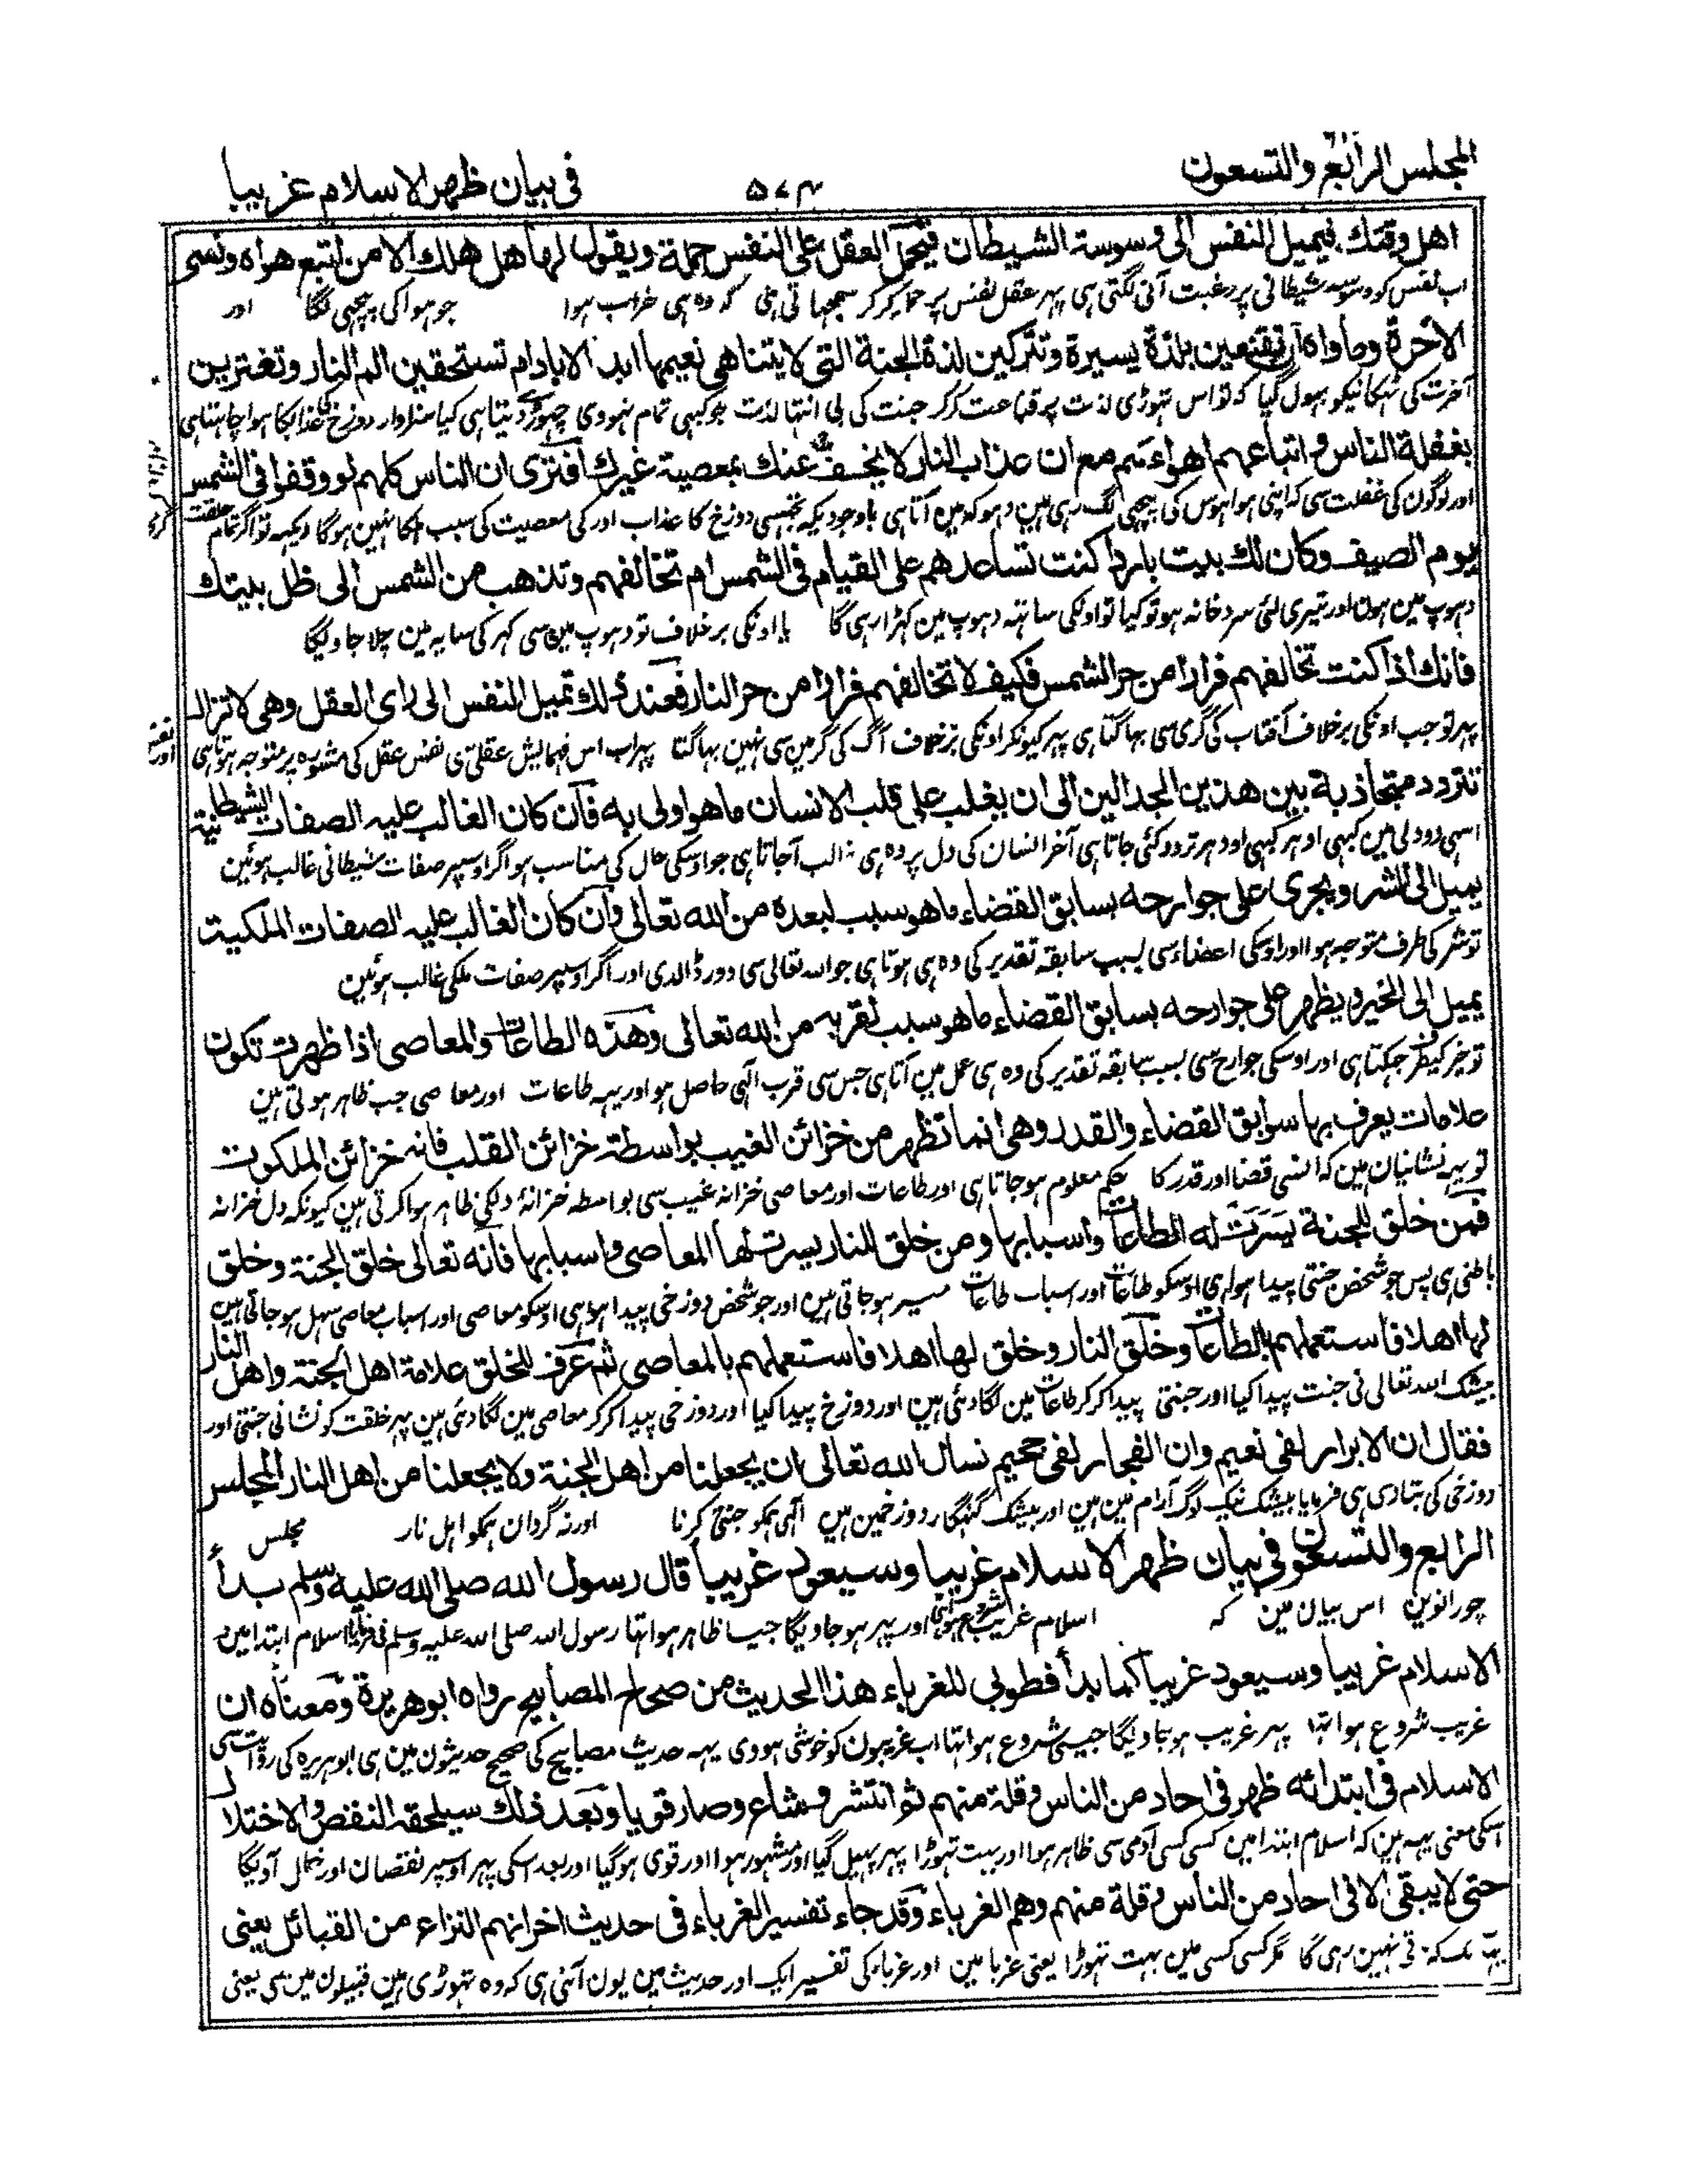 المجلس الرابع والتسعون
۵۷۴
فی بیان ظهر الاسلام غریبا
اهل وقتك فیمیل النفس الی وسوسة الشیطان فیحمل العقل علی النفس حملة ویقول لها هل هلك الا من اتبع هواه ونسی
اب نفس کو وسوسہ شیطانی پر رغبت آنی لگتی ہی پہر عقل نفس پر حملہ کر کر سمجہاتی ہی کہ وہ ہی خراب ہوا جو ہوا کی پیچہی لگا اور
الاخرة وماواه ان تقنعین بلذة یسیرة وتترکین لذة الجنة التی لا یتناهی نعیمها ابد الاباد ام تستحقین الم النار وتغترین
آخرت کی ٹہکانیکو بہول گیا کہ تو اس تہوڑی لذت پر قناعت کر کر جنت کی بی انتہا لذت جو کبہی تمام نہووی چہوڑ دیتا ہی کیا سزاوار دوزخ کی عذاب کا ہوا چاہتا ہی
بغفلة الناس واتباعهم اهواءهم مع ان عذاب النار لا یخفف عنك بمعصیة غیرك افتری ان الناس کلهم لو وقفوا فی الشمس
اور لوگون کی غفلت سی کہ اپنی ہوا ہوس کی پیچہی لگ رہی ہین دہوکہ مین آتا ہی باوجودیکہ تجہسی دوزخ کا عذاب اور کی معصیت کی سبب ہلکا نہین ہوگا دیکہہ تو اگر تمام خلقت
یوم الصیف وکان لك بیت بارد اکنت تساعدهم علی القیام فی الشمس ام تخالفهم وتذهب من الشمس الی ظل بیتك
دہوپ مین ہون اور تیری لئی سرد خانہ ہو تو کیا تو اونکی ساتہہ دہوپ مین کہڑا رہی گا یا اونکی برخلاف تو دہوپ مین سی گہر کی سایہ مین چلا جاویگا
فانك اذا کنت تخالفهم فرارا من حر الشمس فکیف لا تخالفهم فرارا من حر النار فعند ذلك تمیل النفس الی رای العقل وهی لا تزال
پہر تو جب اونکی برخلاف آفتاب کی گرمی سی بہاگتا ہی پہر کیونکر اونکی برخلاف آگ کی گرمی سی نہین بہاگتا پہر اب اس فہمایش عقلی سی نفس عقل کی مشورہ پر متوجہ ہوتا ہی
اور نفس
تتردد متجاذبة بین هذین الجدالین الی ان یغلب علی قلب الانسان ما هو اولی به فان کان الغالب علیه الصفات الشیطانیة
اسی دودلی مین کبہی اودہر کبہی اودہر تردد کئی جاتا ہی آخر انسان کی دل پر وہ ہی غالب آجاتا ہی جو اوسکی حال کی مناسب ہو اگر اوسپر صفات شیطانی غالب ہوئین
یمیل الی الشر ویجری علی جوارحه بسابق القضاء ما هو سبب لبعده من الله تعالی وان کان الغالب علیه الصفات الملکیة
تو شر کی طرف متوجہ ہوا اور اوسکی اعضاء سی بسبب سابقہ تقدیر کی وہ ہی ہوتا ہی جو اللہ تعالی سی دور ڈالدی اور اگر اوسپر صفات ملکی غالب ہوئین
یمیل الی الخیر ویظهر علی جوارحه بسابق القضاء ما هو سبب لقربه من الله تعالی وهذه الطاعات والمعاصی اذا ظهرت تکون
تو خیر کیطرف جہکتا ہی اور اوسکی جوارح سی بسبب سابقہ تقدیر کی وہ ہی عمل مین آتا ہی جس سی قرب الہی حاصل ہو اور یہہ طاعات اور معاصی جب ظاہر ہوتی ہین
علامات یعرف بها سوابق القضاء والقدر وهی انما تظهر من خزائن الغیب بواسطة خزائن القلب فانه خزائن الملکوت
تو یہہ نشانیان ہین کہ انسی قضا اور قدر کا حکم معلوم ہو جاتا ہی اور طاعات اور معاصی خزانہ غیب سی بواسطہ خزانۂ دلکی ظاہر ہوا کرتی ہین کیونکہ دل خزانہ
فمن خلق للجنة یسرت له الطاعات واسبابها ومن خلق للنار یسرت لها المعاصی واسبابها فانه تعالی خلق الجنة وخلق
باطنی ہی پس جو شخص جنتی پیدا ہوا ہی اوسکو طاعات اور اسباب طاعات میسر ہو جاتی ہین اور جو شخص دوزخی پیدا ہوا ہی اوسکو معاصی اور اسباب معاصی سہل ہو جاتی ہین
لها اهلا فاستعملهم بالطاعات وخلق النار وخلق لها اهلا فاستعملهم بالمعاصی ثم عرف للخلق علامة اهل الجنة واهل النار
بیشک اللہ تعالی نی جنت پیدا کیا اور جنتی پیدا کر کر طاعات مین لگا دئی ہین اور دوزخ پیدا کیا اور دوزخی پیدا کر کر معاصی مین لگا دئی ہین پہر خلقت کو نشانی جنتی اور
فقال ان الابرار لفی نعیم وان الفجار لفی جحیم نسأل الله تعالی ان یجعلنا من اهل الجنة ولا یجعلنا من اهل النار المجلس
دوزخی کی بتادی ہی فرمایا بیشک نیک لوگ آرام مین ہین اور بیشک گنہگار دوزخ مین ہین الہی ہمکو جنتی کرنا اور نہ گردان ہمکو اہل نار مجلس
الرابع والتسعون فی بیان ظهر الاسلام غریبا وسیعود غریبا قال رسول الله صلی الله علیه وسلم بدأ
چورانوین اس بیان مین کہ اسلام غریب شروع ہوا ہی اور پہر ہو جاویگا جیسا ظاہر ہوا تہا رسول اللہ صلی اللہ علیہ وسلم نی فرمایا اسلام ابتدا مین
الاسلام غریبا وسیعود غریبا کما بدأ فطوبی للغرباء هذا الحدیث من صحاح المصابیح رواه ابو هریرة ومعناه ان
غریب شروع ہوا تہا پہر غریب ہو جاویگا جیسی شروع ہوا تہا اب غریبون کو خوشی ہووی یہہ حدیث مصابیح کی صحیح حدیثون مین ہی ابو ہریرہ کی روایت سی
الاسلام فی ابتدائه ظهر فی احاد من الناس وقلة منهم ثم انتشر وشاع وصار قویا وبعد ذلك سیلحقه النقص والاختلال
اسکی معنی یہہ ہین کہ اسلام ابتدا مین کسی کسی آدمی سی ظاہر ہوا اور بہت تہوڑا پہر پہیل گیا اور مشہور ہوا اور قوی ہو گیا اور بعد اسکی پہر اوسپر نقصان اور خلل آویگا
حتی لا یبقی الا فی احاد من الناس وقلة منهم وهم الغرباء وقد جاء تفسیر الغرباء فی حدیث اخر انهم النزاع من القبائل یعنی
یہانتک کہ باقی نہین رہی گا مگر کسی کسی مین بہت تہوڑا یعنی غربا مین اور غرباء کی تفسیر ایک اور حدیث مین یون آئی ہی کہ وہ تہوڑی ہین قبیلون مین سی یعنی